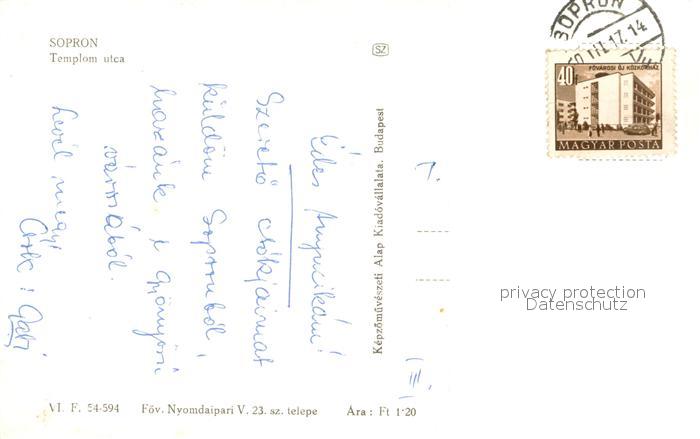 SOPRON
Templom utca
SZ
Édes Anyucikám!
Szerető csókjaimat
küldöm Sopronból,
hazánk e gyönyörű
városából.
Levél megy!
Csók: Gabi
Képzőművészeti Alap Kiadóvállalata, Budapest
VI. F. 54-594 Főv. Nyomdaipari V. 23. sz. telepe Ára: Ft 1·20
SOPRON
III. 17. 14
40
FŐVÁROSI ÚJ KÖZKÓRHÁZ
MAGYAR POSTA
privacy protection
Datenschutz